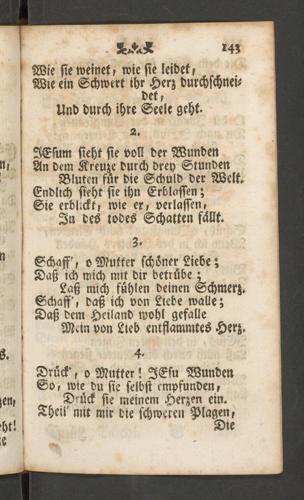 143
Wie sie weinet, wie sie leidet,
Wie ein Schwert ihr Herz durchschnei-
det,
Und durch ihre Seele geht.
2.
JEsum sieht sie voll der Wunden
An dem Kreuze durch drey Stunden
Bluten für die Schuld der Welt.
Endlich sieht sie ihn Erblassen;
Sie erblickt, wie er, verlassen,
In des todes Schatten fällt.
3.
Schaff', o Mutter schöner Liebe;
Daß ich mich mit dir betrübe;
Laß mich fühlen deinen Schmerz.
Schaff', daß ich von Liebe walle;
Daß dem Heiland wohl gefalle
Mein von Lieb entflammtes Herz.
4.
Drück', o Mutter! JEsu Wunden
So, wie du sie selbst empfunden,
Drück sie meinem Herzen ein.
Theil' mit mir die schweren Plagen,
Die